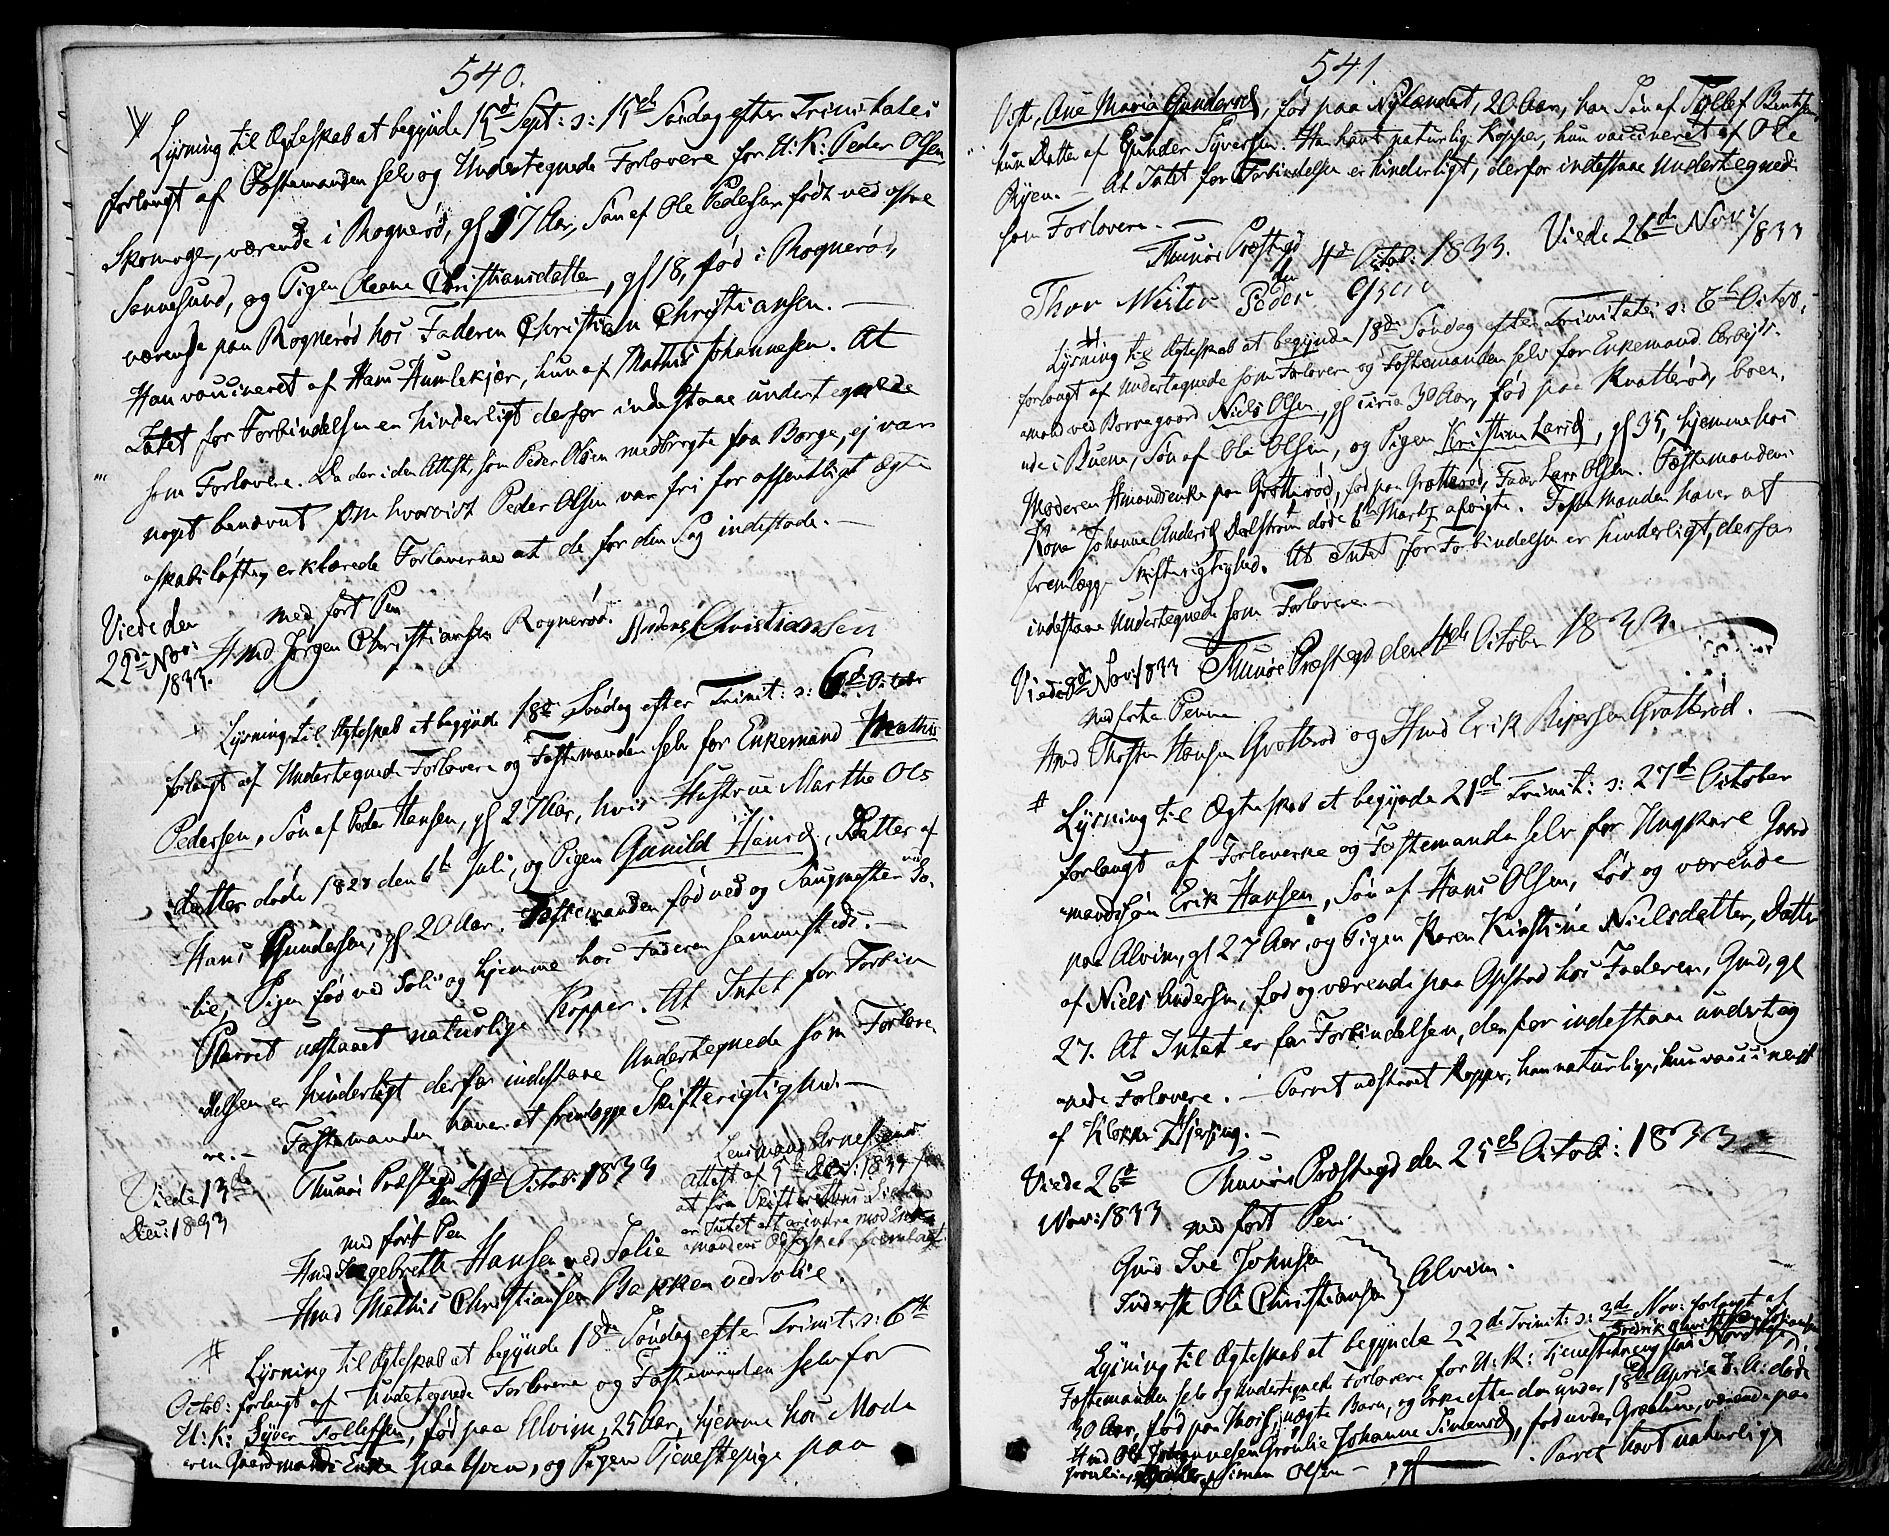 540.
Lysning til Ægteskab at begynde 15d Sept: ɔ: 15de Søndag efter Trinitates
forlangt af Fæstemanden selv og Undertegnede Forlovere for U: K: Peder Olsen
Skomager, værende i Rognerød, gl 27 Aar, Søn af Ole Pedersen født ved østre
Sannesund, og Pigen Oleane Christiansdatter, gl 18, fød i Rognerød,
værende paa Rognerød hos Faderen Christian Christiansen. —
Han vaccineret af Hans Humlekjær, hun af Mathis Johannesen. At
Intet for Forbindelsen er hinderligt derfor indestaae undertegnede
som Forlovere. Da der i den Attest, som Peder Olsen medbragte fra Borge, ej var
noget benævnt om hvorvidt Peder Olsen var fri for offentligt Ægte
skabsløfte, erklærede Forloverne at de for den Sag indestode. —
Viede den
22de Nov:
1833.
med ført Pen
Hmd Jørgen Christiansen Rognerød. Anders Christiansen
Lysning til Ægteskab at begynde 18de Søndag efter Trinit: ɔ: 6te Octobr
forlangt af Undertegnede Forlovere og Fæstemanden selv for Enkemand Mathis
Pedersen, Søn af Peder Hansen, gl 27 Aar, hvis Hustrue Marthe Ols
datter døde 1828 den 6te Juli, og Pigen Gunild Hansd, Datter af
Hans Gundersen, gl 20 Aar. Fæstemanden fød ved og Saugmester ved So-
lie, Pigen fød ved Solie og hjemme hos Faderen sammesteds. —
Parret udstaaet naturlige Kopper. At Intet for Forbin
delsen er hinderligt derfor indestaae Undertegnede som Forlove
re. — Fæstemanden haver at fremlægge Skifterigtighed. —
Thunøe Præstegd den 4de Octob: 1833
Lensmand Arnesens
attest af 5te Dec: 1833
at fra Skifterettens Side
er Intet at erindre mod Enke
mandens Ægteskab fremlagt
Viede 13de
Dec: 1833
med ført Pen
Hmd Ingebreth Hansen ved Solie
Hmd Mathis Christiansen Bakken ved Solie.
Lysning til Ægteskab at begynde 18de Søndag efter Trinit: ɔ: 6te
Octob: forlangt af Undertegnede Forlovere og Fæstemanden selv for
U: K: Syver Tollefsen, fød paa Alvim, 25 Aar, hjemme hos Mode
ren Gaardmands Enke paa Ihoen, og Pigen Tjenestepige paa
541.
Ost, Ane Maria Gundersd, fød paa Nylandet, 20 Aar, han Søn af Tollef Bentsen
hun Datter af Gunder Syversen. Han havt naturlige Kopper, hun vaccineret af Ole
Ryen. — At Intet for Forbindelsen er hinderligt, derfor indestaae Undertegnede
som Forlovere. —
Thunøe Præstegd den 4de Octob: 1833. Viede 26de Nov: 1833
Thor Wister Peder
Lysning til Ægteskab at begynde 18de Søndag efter Trinitates ɔ: 6te Octob:
forlangt af Undertegnede som Forlovere og Fæstemanden selv for Enkemand Arbejds
mand ved Borregaard Niels Olsen, gl circa 30 Aar, fød paa Kvatterød, boen
de i Buene, Søn af Ole Olsen, og Pigen Kristine Larsd, gl 35, hjemme hos
Moderen Hmandsenke paa Grotterød, fød paa Grotterød, Fader Lars Olsen. Fæstemandens
Kone Johanne Andersd Dalstrøm døde 6te Marty afvigte. Fæstemanden haver at
fremlægge Skifterigtighed. At Intet for Forbindelsen er hinderligt, derfor
indestaae Undertegnede som Forlovere. —
Viede 8de Nov: 1833 Thunøe Præstegd den 4de October 1833.
med førte Penne
Hmd Thosten Hansen Grotterød og Hmd Erik Biørsen Grotterød. —
Lysning til Ægteskab at begynde 21de Trinit: ɔ: 27de October
forlangt af Forloverne og Fæstemanden selv for Ungkarl Gaard
mandssøn Erik Hansen, Søn af Hans Olsen, fød og værende
paa Alvim, gl 27 Aar, og Pigen Karen Kirstine Nielsdatter, Datter
af Niels Andersen, fød og værende paa Opstad hos Faderen, Gmd, gl
27. At Intet er for Forbindelsen, derfor indestaae underteg
nede Forlovere. — Parret udstaaet Kopper, han naturlige, hun vaccineret
af Klokker Hjersing. —
Thunøe Præstegd den 25de Octob: 1833
Viede 26de
Nov: 1833
med ført Pen.
Gmd Ive Johnsen
Inderst Ole Christiansen
Alvim.
Lysning til Ægteskab at begynde 22de Trinit: ɔ: 3de Nov: forlangt af
Fæstemanden selv og Undertegnede Forlovere for U: K: Tjenestedreng paa
30 Aar, fød paa Thorss, uægte Barn, og Enke efter den under 18de April d: A: døde
Hmd Ole Johannesen Grønlie Johanne Simensd, fød under Grønlie, værende paa
Grønlie, Datter af Simen Olsen — . Parret havt naturlige